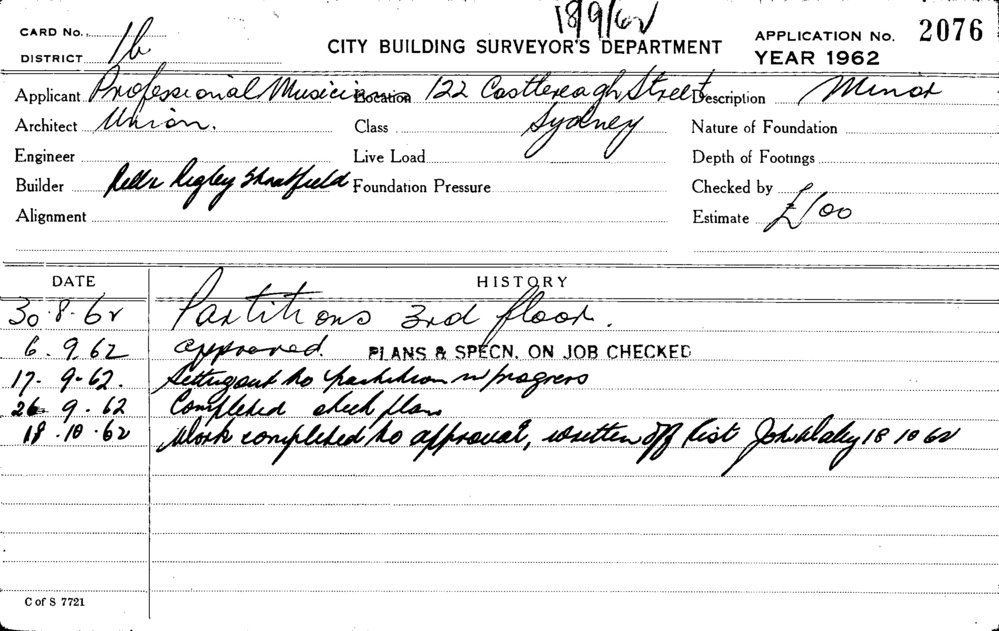 18/9/62
CARD No.
DISTRICT 1b
CITY BUILDING SURVEYOR'S DEPARTMENT
APPLICATION No. 2076
YEAR 1962
Applicant Professional Musicians Location 122 Castlereagh Street Description Minor
Architect Union. Class Sydney Nature of Foundation
Engineer Live Load Depth of Footings
Builder Foundation Pressure Checked by
Alignment Estimate £100
DATE HISTORY
30.8.62 Partitions 3rd floor.
6.9.62 approved. PLANS & SPECN. ON JOB CHECKED
17.9.62. Setting out to partition in progress
26 9.62 Completed check plan
18.10.62 Work completed to approval, written off list John Daley 18 10 62
C of S 7721